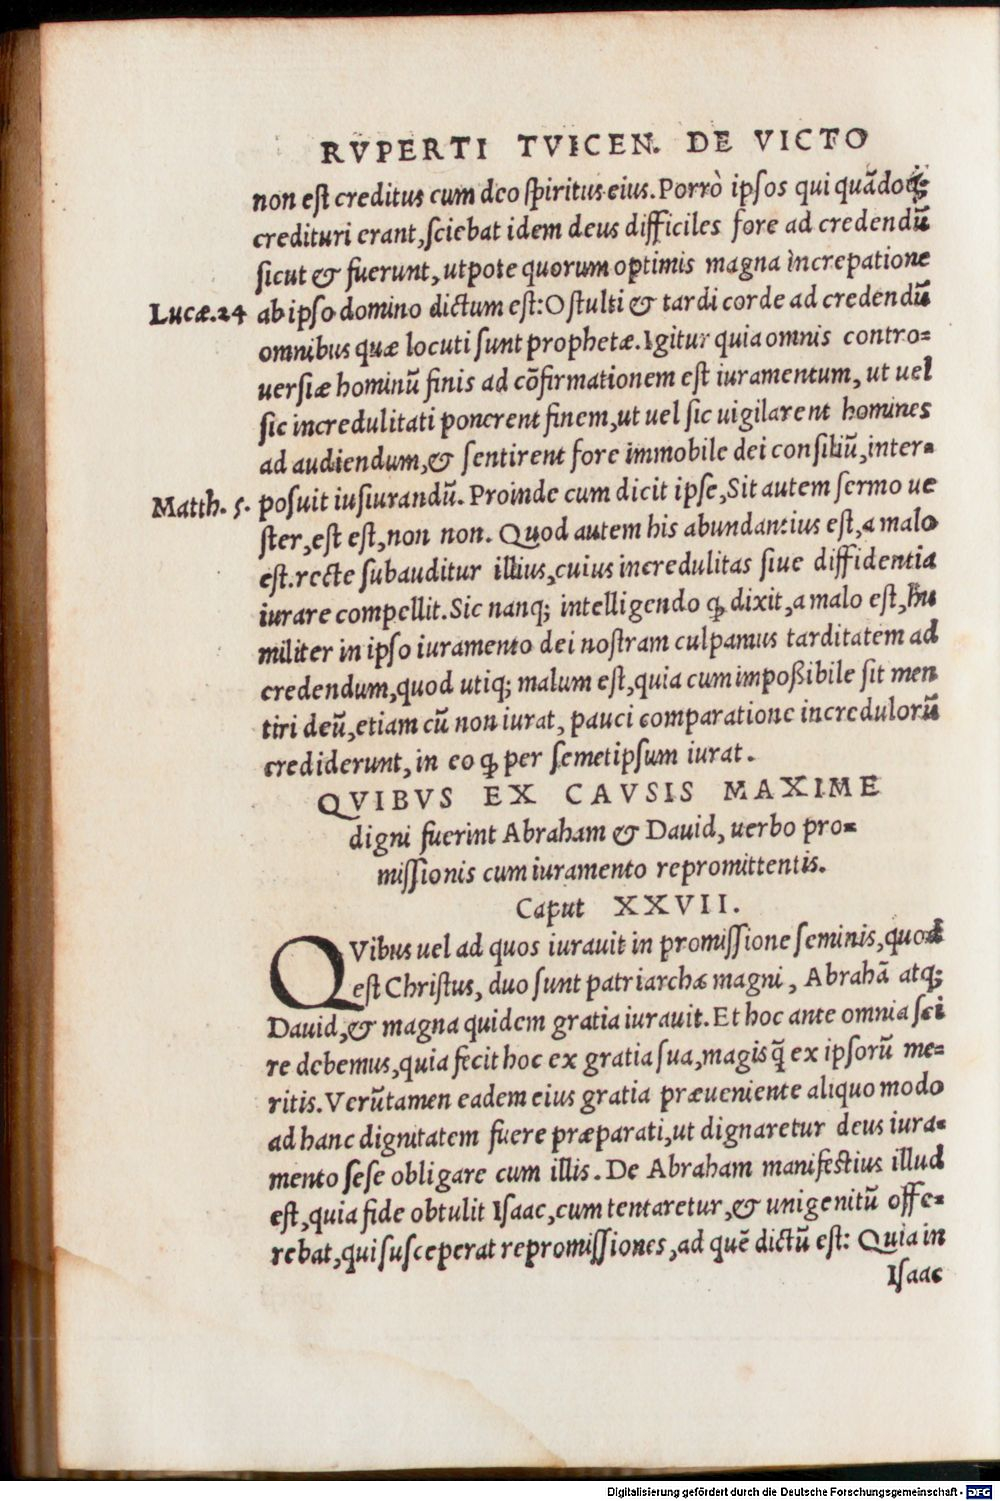 RVPERTI TVICEN. DE VICTO
non est creditus cum deo spiritus eius. Porrò ipsos qui quãdoq;
credituri erant, sciebat idem deus difficiles fore ad credendũ
sicut & fuerunt, utpote quorum optimis magna increpatione
Lucæ. 24 ab ipso domino dictum est: O stulti & tardi corde ad credendũ
omnibus quæ locuti sunt prophetæ. Igitur quia omnis contro=
uersiæ hominũ finis ad cõfirmationem est iuramentum, ut uel
sic incredulitati ponerent finem, ut uel sic uigilarent homines
ad audiendum, & sentirent fore immobile dei consiliũ, inter=
Matth. 5. posuit iusiurandũ. Proinde cum dicit ipse, Sit autem sermo ue
ster, est est, non non. Quod autem his abundantius est, a malo
est. recte subauditur illius, cuius incredulitas siue diffidentia
iurare compellit. Sic nanq; intelligendo ꝙ dixit, a malo est, hu
militer in ipso iuramento dei nostram culpamus tarditatem ad
credendum, quod utiq; malum est, quia cum impoßibile sit men
tiri deũ, etiam cũ non iurat, pauci comparatione incredulorũ
crediderunt, in eo ꝙ per semetipsum iurat.
QVIBVS EX CAVSIS MAXIME
digni fuerint Abraham & Dauid, uerbo pro=
missionis cum iuramento repromittentis.
Caput XXVII.
QVibus uel ad quos iurauit in promissione seminis, quod
est Christus, duo sunt patriarchæ magni, Abrahã atq;
Dauid, & magna quidem gratia iurauit. Et hoc ante omnia sci
re debemus, quia fecit hoc ex gratia sua, magis q̃ ex ipsorũ me=
ritis. Verũtamen eadem eius gratia præueniente aliquo modo
ad hanc dignitatem fuere præparati, ut dignaretur deus iura=
mento sese obligare cum illis. De Abraham manifestius illud
est, quia fide obtulit Isaac, cum tentaretur, & unigenitũ offe=
rebat, qui susceperat repromissiones, ad quẽ dictũ est: Quia in
Isaac
Digitalisierung gefördert durch die Deutsche Forschungsgemeinschaft - DFG